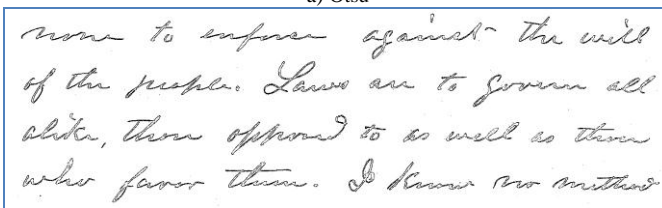 a) Otsu
none to enforce against the will
of the people. Laws are to govern all
alike, those opposed to as well as those
who favor them. I know no method